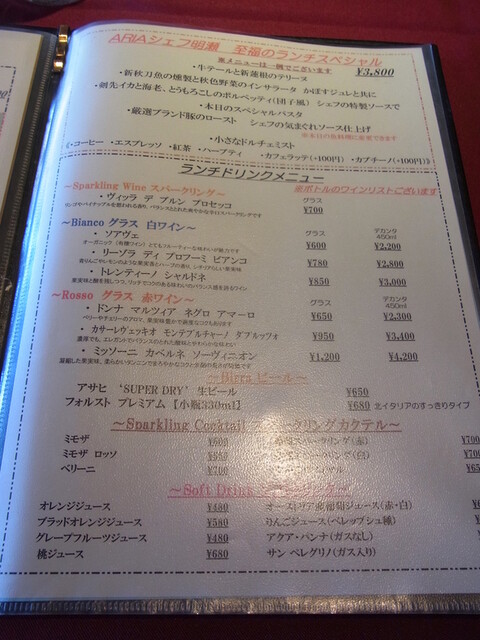 ARIAシェフ明瀬 至福のランチスペシャル
※メニューは一例でございます ¥3,800
・牛テールと新蓮根のテリーヌ
・新秋刀魚の燻製と秋色野菜のインサラータ かぼすジュレと共に
・剣先イカと海老、とうもろこしのポルペッティ(団子風) シェフの特製ソースで
・本日のスペシャルパスタ
・厳選ブランド豚のロースト シェフの気まぐれソース仕上げ
・小さなドルチェミスト
《・コーヒー ・エスプレッソ ・紅茶 ・ハーブティ ・カフェラッテ(+100円) ・カプチーノ(+100円)》
ランチドリンクメニュー
～Sparkling Wine スパークリング～ ※ボトルのワインリストございます
・ヴィッラ デ ブルン プロセッコ グラス ¥700
～Bianco グラス 白ワイン～ グラス デカンタ 450ml
・ソアヴェ ¥600 ¥2,200
・リーゾラ ディ プロフーミ ビアンコ ¥780 ¥2,800
・トレンティーノ シャルドネ ¥850 ¥3,000
～Rosso グラス 赤ワイン～ グラス デカンタ 450ml
・ドンナ マルツィア ネグロ アマーロ ¥650 ¥2,300
・カサーレヴェッキオ モンテプルチャーノ ダブルッツォ ¥950 ¥3,400
・ミッソーニ カベルネ ソーヴィニオン ¥1,200 ¥4,200
～Birra ビール～
アサヒ 'SUPER DRY' 生ビール ¥650
フォルスト プレミアム 【小瓶330ml】 ¥680 北イタリアのすっきりタイプ
～Sparkling Cocktail スパークリングカクテル～
ミモザ
ミモザ ロッソ
ベリーニ ¥700
～Soft Drink
オレンジジュース ¥480
ブラッドオレンジジュース ¥580
りんごジュース(ベレップシュ種)
グレープフルーツジュース ¥480
アクア・パンナ(ガスなし)
桃ジュース ¥680
サン ペレグリノ(ガス入り)